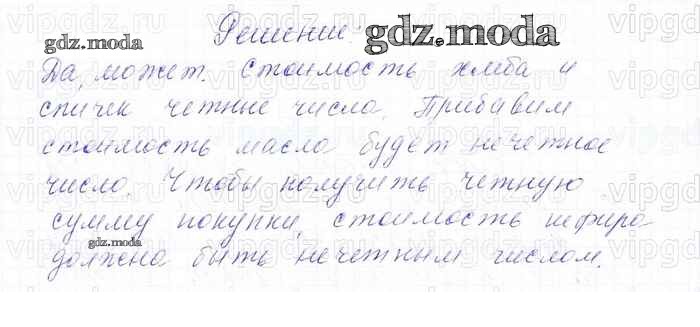 Решение.
gdz.moda
gdz.moda
Да, может. Стоимость хлеба и
спичек четные числа. Прибавим
стоимость масла будет нечетное
число. Чтобы получить четную
сумму покупки, стоимость кефира
gdz.moda
должна быть нечетным числом.